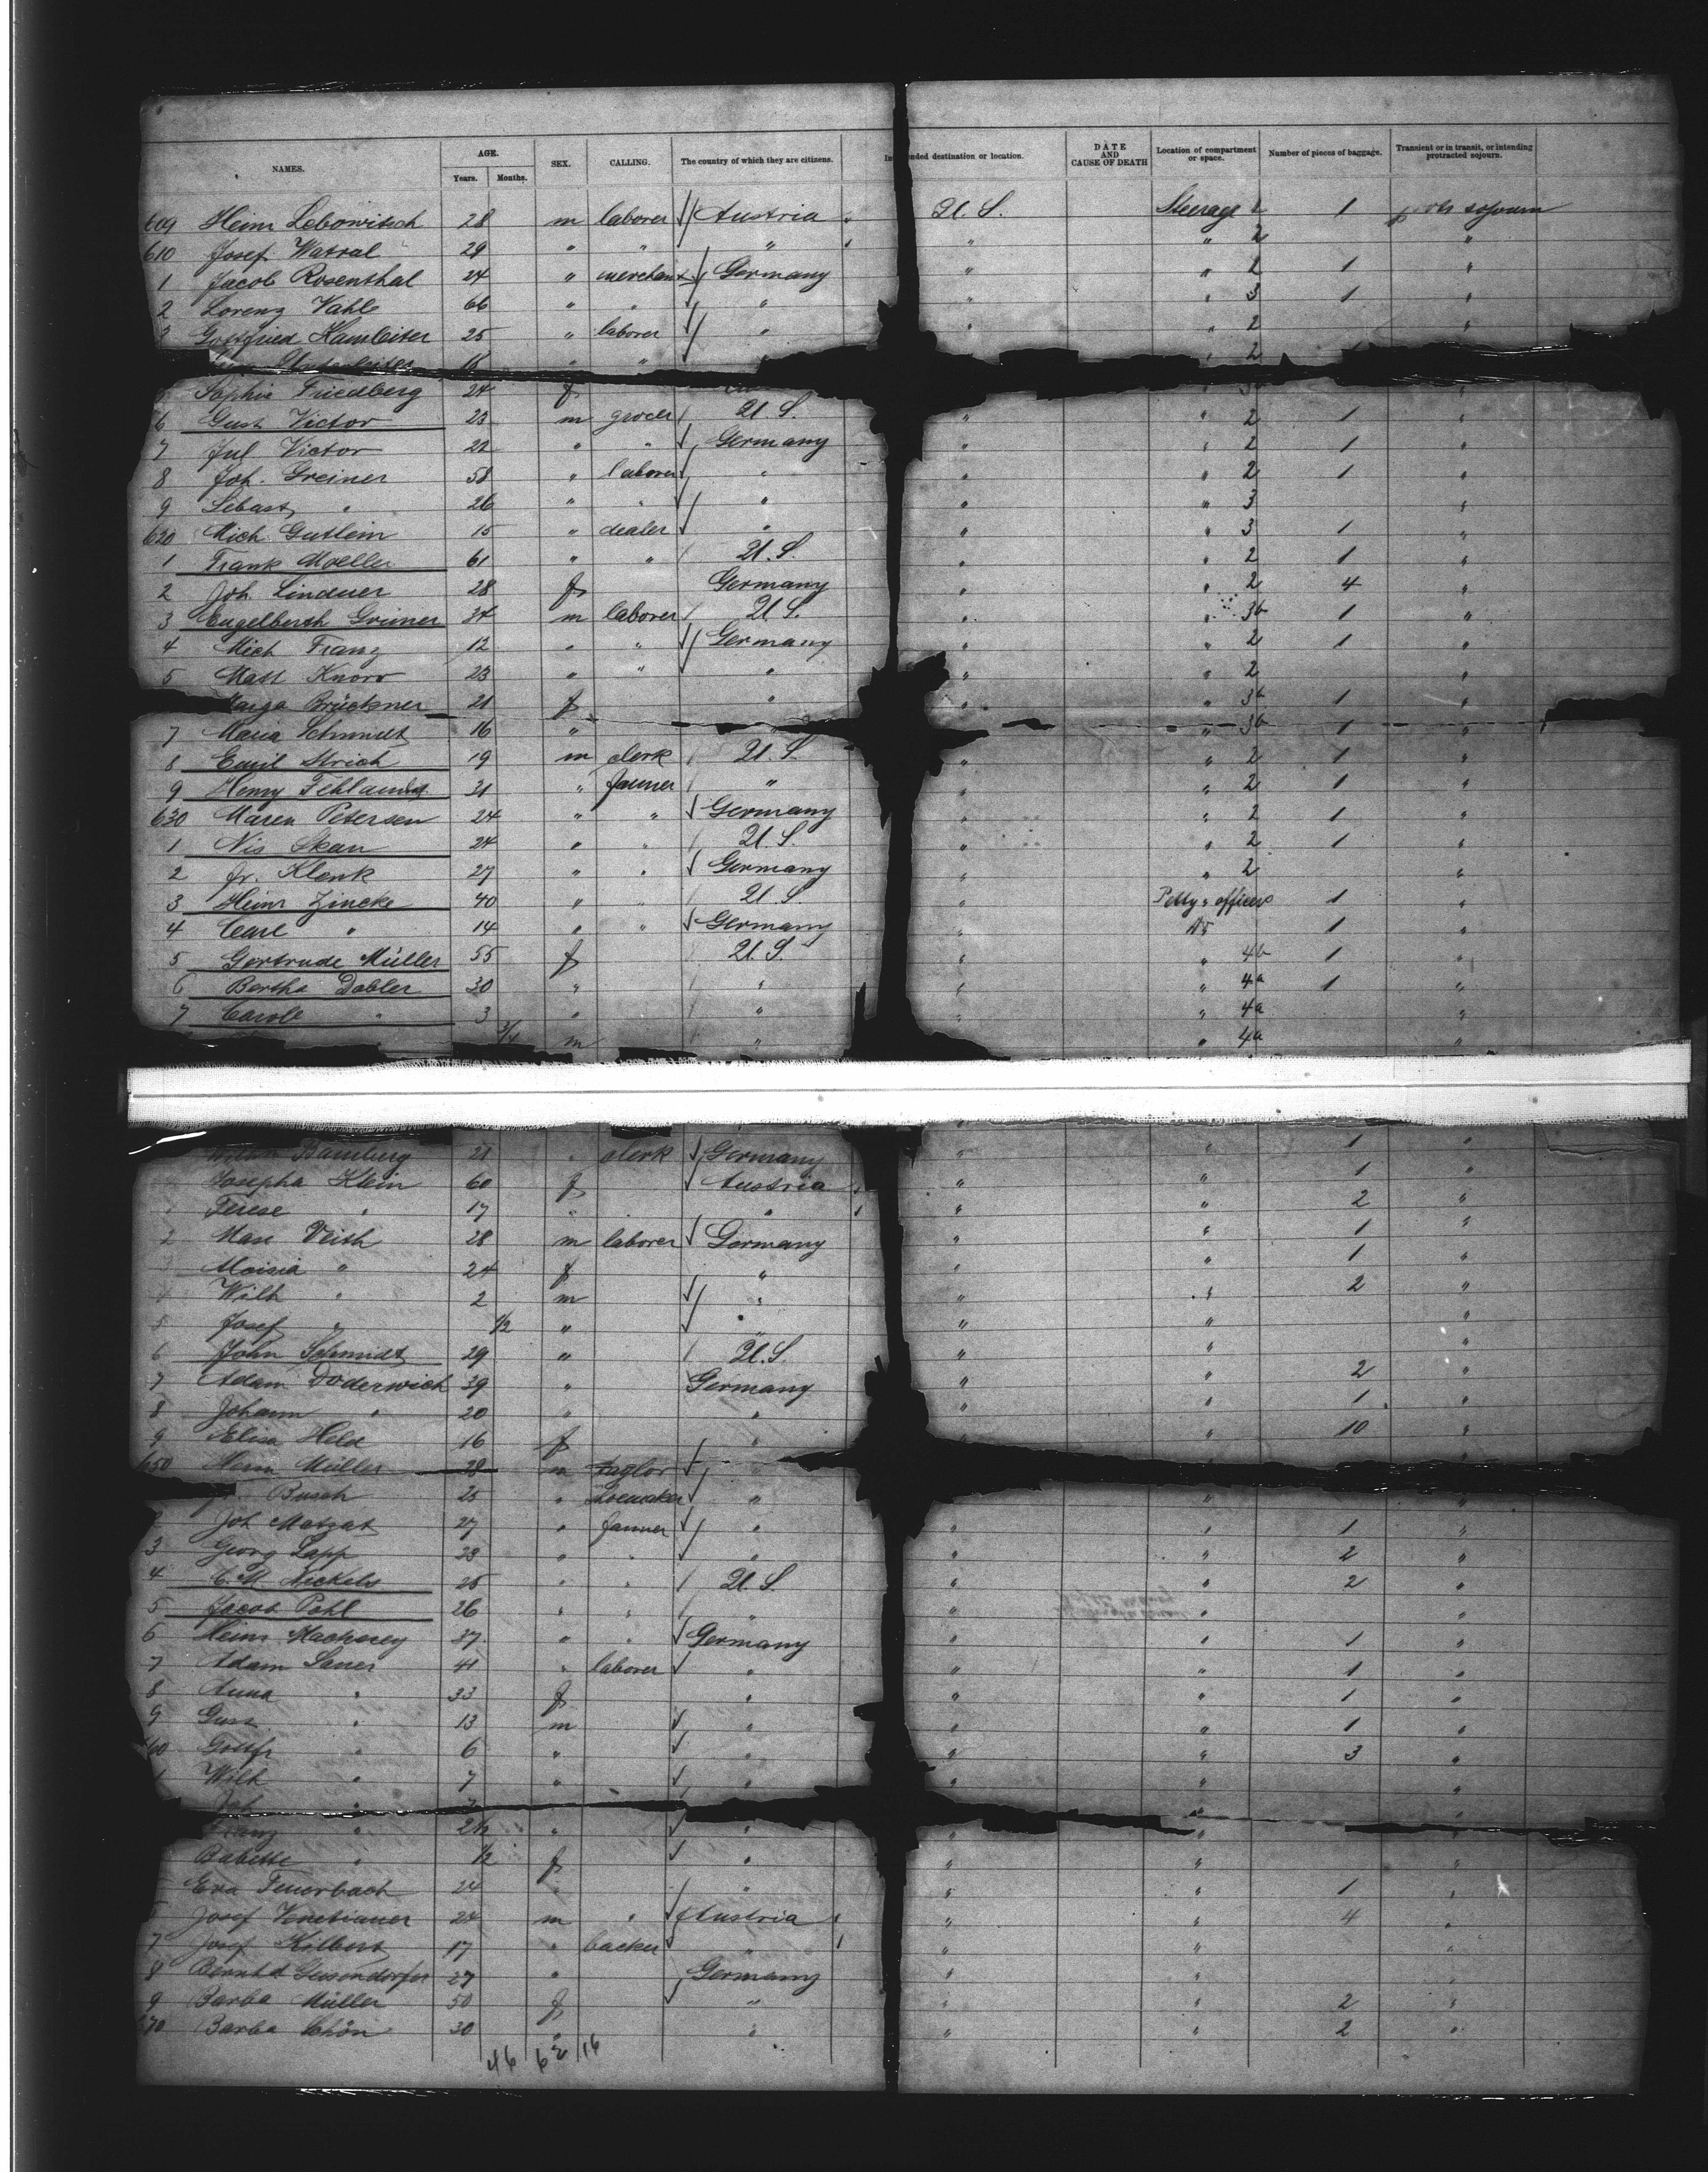 NAMES. AGE. Years. Months. SEX. CALLING. The country of which they are citizens. nded destination or location. DATE AND CAUSE OF DEATH Location of compartment or space. Number of pieces of baggage. Transient or in transit, or intending protracted sojourn.
609 Heinr Lebowitsch 28 m laborer Austria U. S. Steerage 2 1 sojourn
610 Josef Watral 29 " " " " " 2 "
1 Jacob Rosenthal 24 " merchant Germany " " 2 1 "
2 Lorenz Vahle 66 " " " " " 3 1 "
3 Gottfried Hamleiter 25 " laborer " " " 2 "
" " " 2
Sophie Friedberg 24 f
6 Gust Victor 23 m grocer U. S. " " 2 1 "
7 Jul Victor 22 " " Germany " " 2 1 "
8 Joh. Greiner 58 " laborer " " " 2 1 "
9 Sebast " 26 " " " " " 3 "
620 Mich Gutlein 15 " dealer " " " 3 1 "
1 Frank Moeller 61 " " U. S. " " 2 1 "
2 Joh. Lindner 28 f Germany " " 2 4 "
3 Engelberth Greiner 34 m laborer U. S. " " 3b 1 "
4 Mich Franz 12 " " Germany " " 2 1 "
5 Matt Knorr 23 " " " " " 2 "
Marga Brückner 21 f " " " 3b 1 "
7 Maria Schmidt 16 " " " 3b 1 "
8 Emil Strich 19 m clerk U. S. " " 2 1 "
9 Henry 31 " farmer " " " 2 1 "
630 Maren Petersen 24 " " Germany " " 2 1 "
1 Nis Skau 24 " " U. S. " " 2 1 "
2 Fr. Klenk 27 " " Germany " " 2 "
3 Heinr Zincke 40 " " U. S. " Petty officers 1 "
4 Carl " 14 " " Germany " 1 "
5 Gertrude Müller 55 f U. S. " " 4b 1 "
6 Bertha Dobler 30 " " " " 4a 1 "
7 Carole " 3 " " " " 4a "
3/4 m " " 4a "
Bamberg 21 " clerk Germany " " 1 "
Josepha Klein 60 f Austria " " 1 "
Terese " 17 " " " " 2 "
2 Max Veith 28 m laborer Germany " " 1 "
" 24 f " " " 1 "
Wilh " 2 m " " " 2 "
5 Josef " 1/2 " " " " "
6 John Schmidt 29 " U. S. " " "
7 Adam Doderwich 39 " Germany " " 2 "
8 Johann " 20 " " " " 1 "
9 Elisa Held 16 f " " " 10 "
650 Herm Müller 28 m taylor
Fr. Busch 25 " shoemaker " " "
Joh Matzat 27 " farmer " " " 1 "
3 Georg Lapp 23 " " " " " 2 "
4 C. M. Nickels 25 " " U. S. " " 2 "
5 Jacob Pohl 26 " " " " " "
6 Heinr 37 " " Germany " " 1 "
7 Adam Sauer 41 " laborer " " " 1 "
8 Anna " 33 f " " " 1 "
9 Gust " 13 m " " " 1 "
Gottfr " 6 " " " " 3 "
Wilh " 7 " " " " "
Joh " " "
Franz " 2 1/2 " " " "
Babette " 1/2 f " " " "
Eva Feuerbach 24 " " " " 1 "
Josef Venetianer 24 m " Austria " " 4 "
7 Josef Kilbert 17 " backer " " " "
8 Bernhd Geisendorfer 27 " Germany " " "
9 Barba Müller 50 f " " " 2 "
670 Barba Schön 30 " " " " 2 "
46 62 16